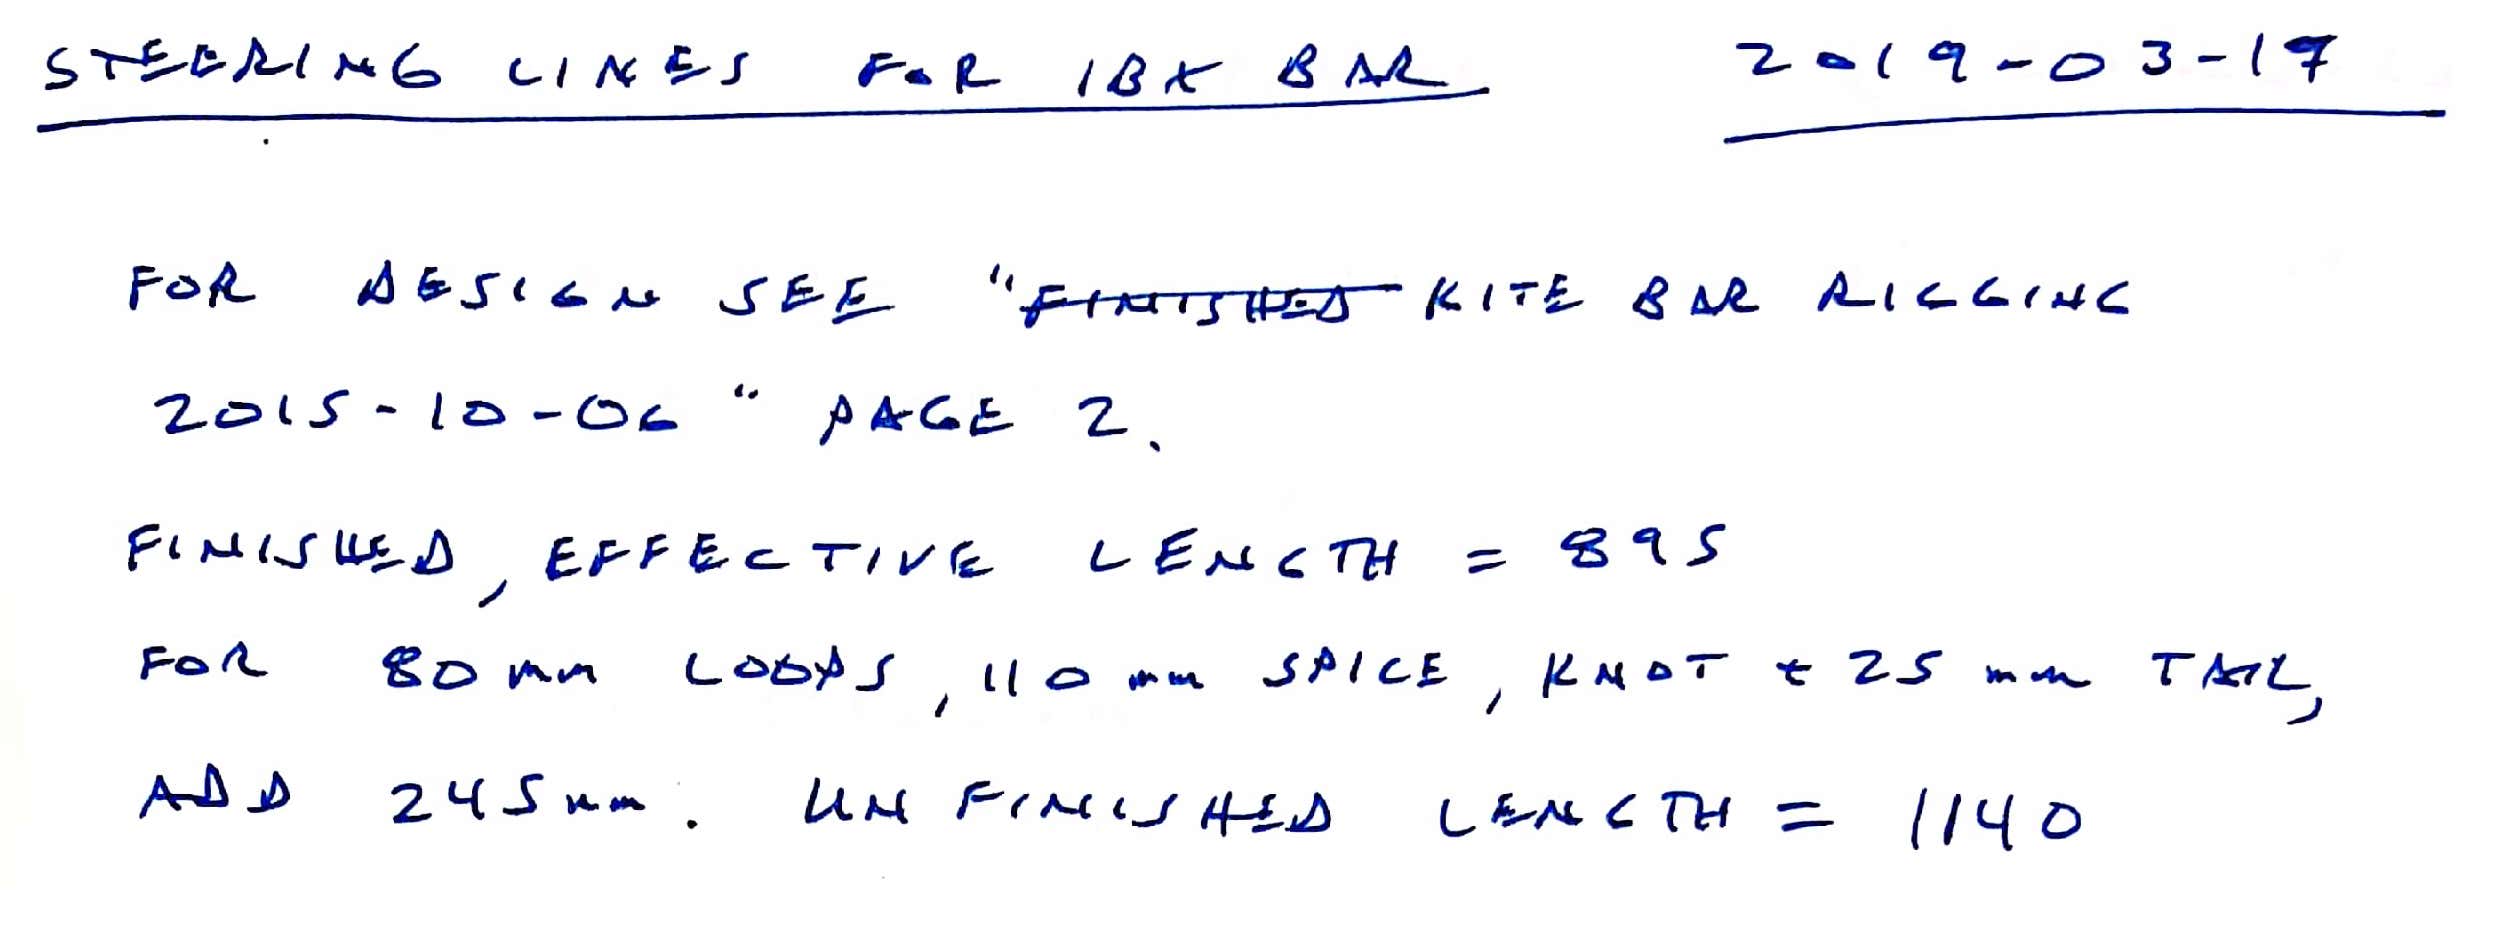 STEERING LINES FOR IBX BAR 2019-03-17
FOR DESIGN SEE "~~FINISHED~~ KITE BAR RIGGING
2015-10-06" PAGE 2.
FINISHED, EFFECTIVE LENGTH = 895
FOR 80 mm LOOPS, 110 mm SPICE, KNOT & 25 mm TAIL,
ADD 245mm. UNFINISHED LENGTH = 1140